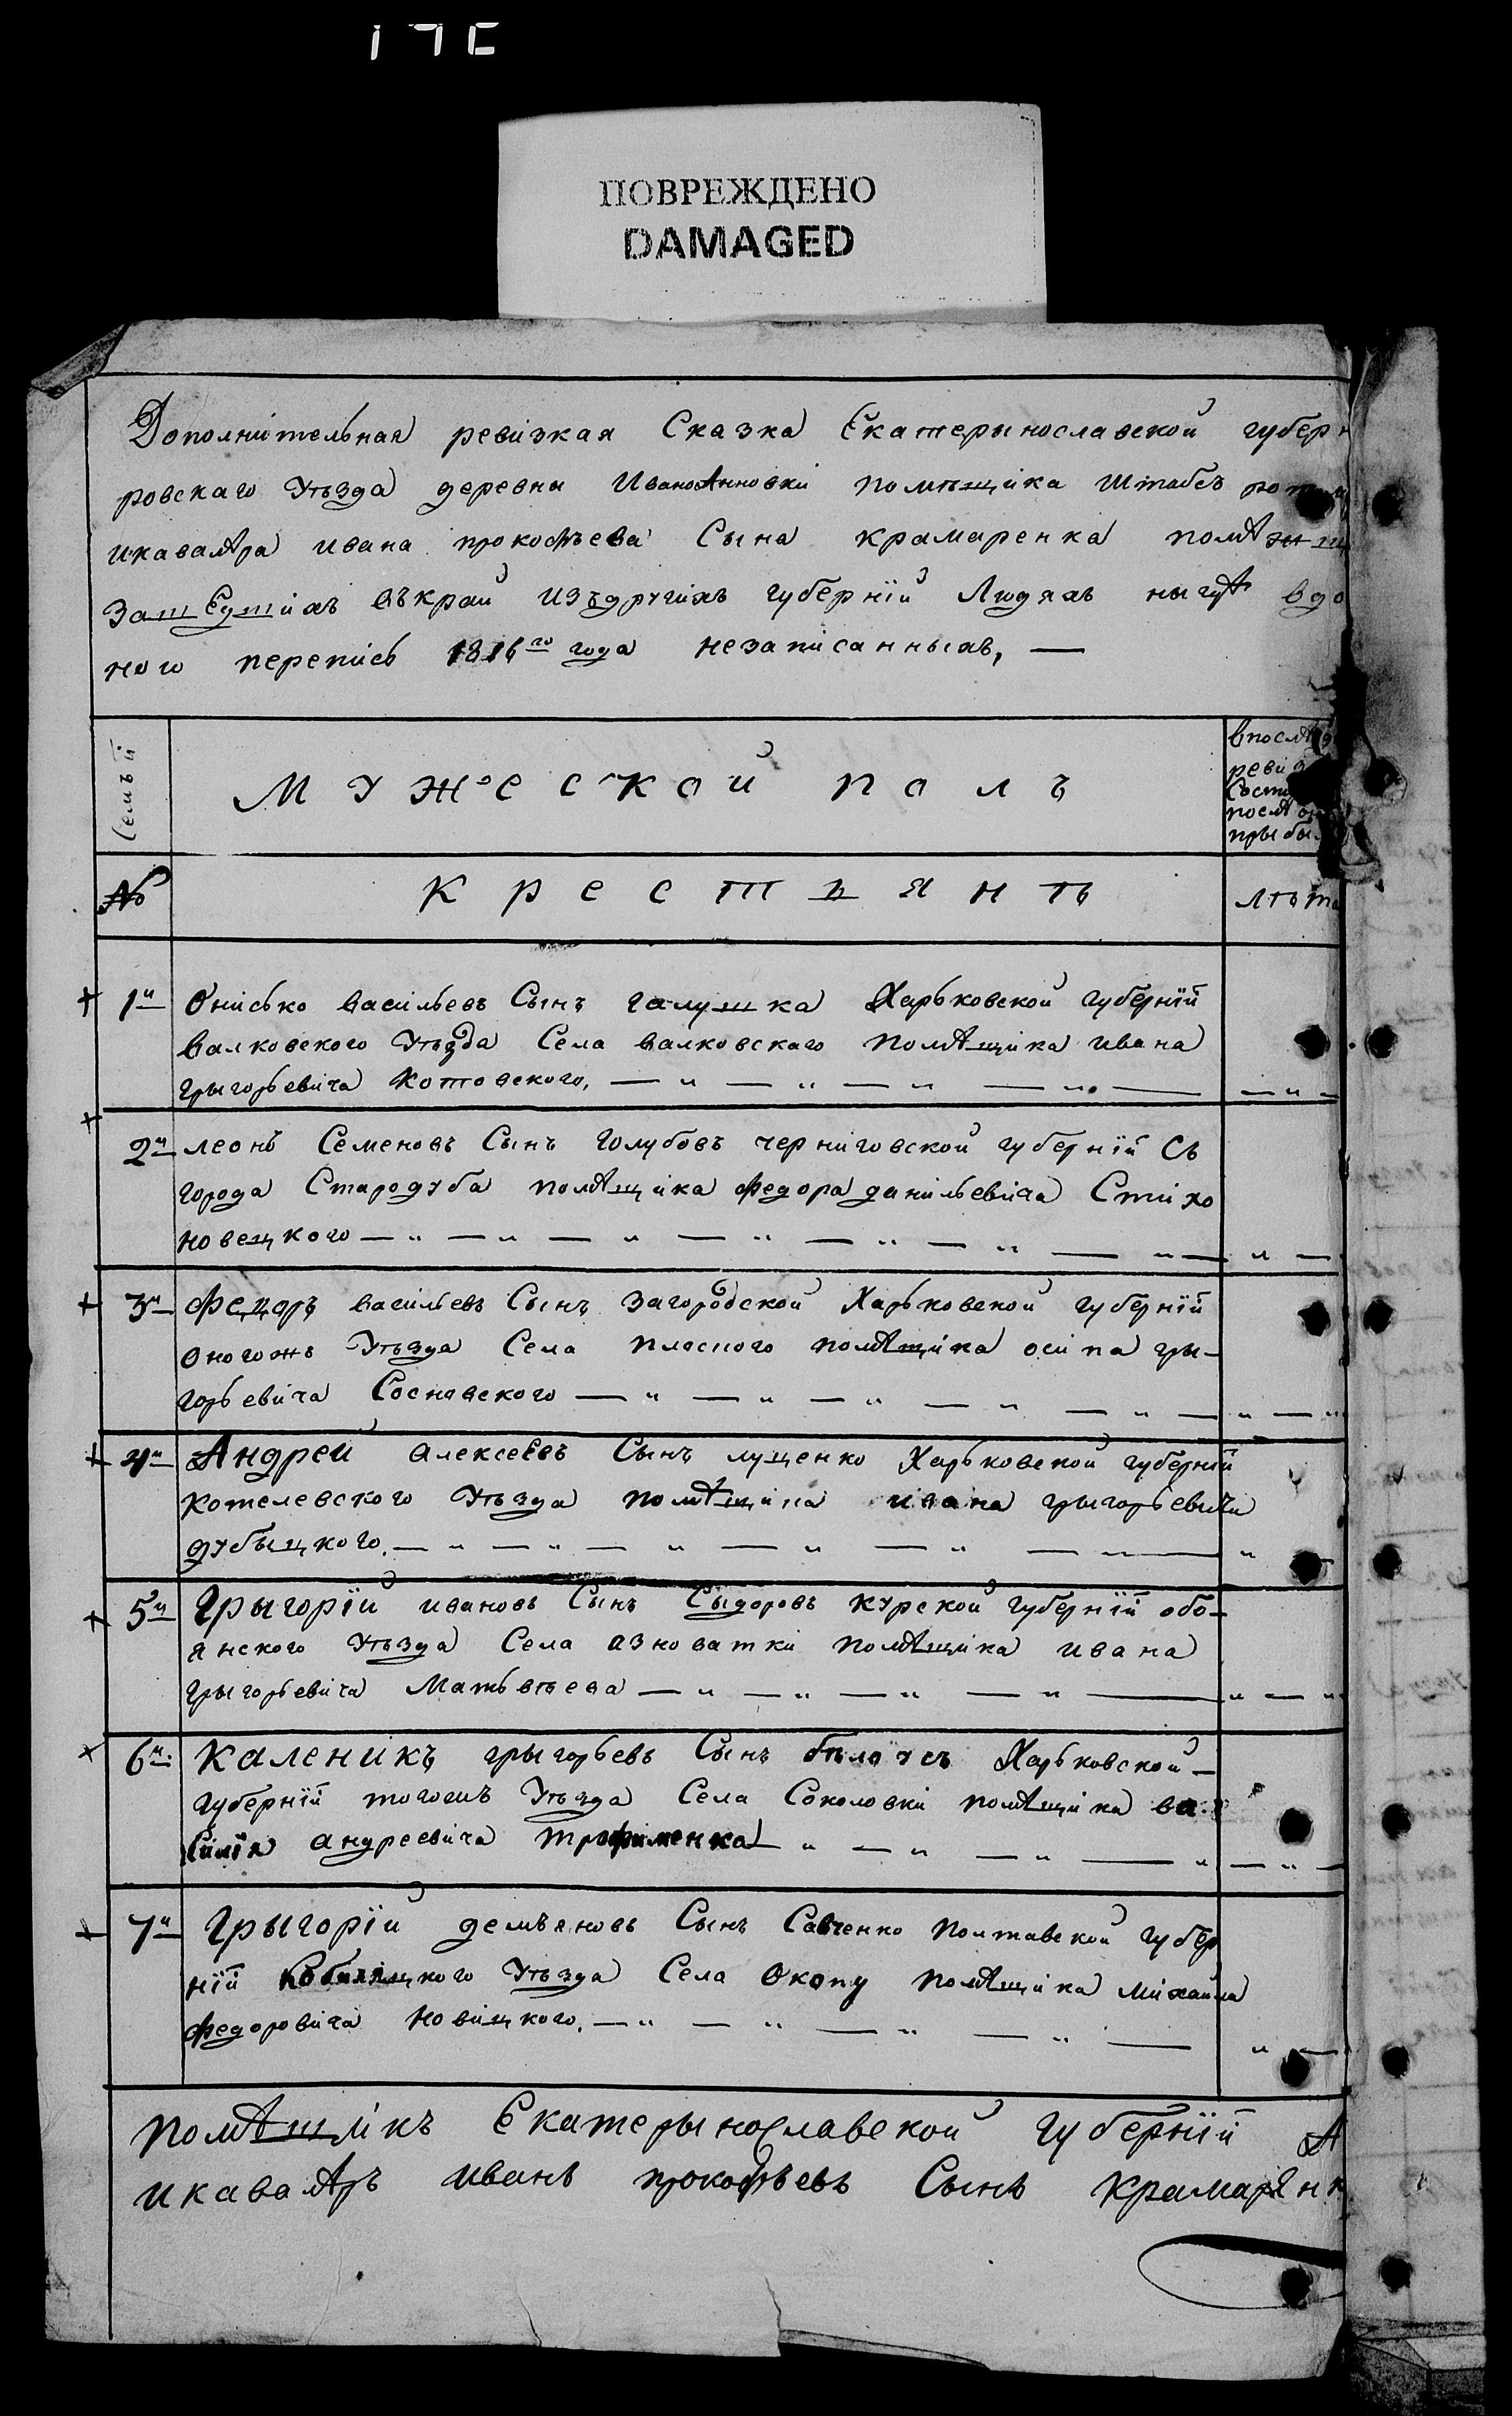 ПОВРЕЖДЕНО
DAMAGED
Дополнительная ревизкая Сказка Екатерынославской губерн
ровскаго Уъзда деревни ИваноАнновки помъщика Штабсъ ротм
икавалѣра ивана прокофъева Сына крамаренка помѣ
зашЕдшихъ въкрай изъдругихъ губерній Людяхъ нигдѣ вдо
ного перепись 1816го года незаписанныхъ, —
Семъй
МУЖЕСКОЙ ПОЛЪ
впослѣд
ревиз
Состо
послѣ
прыбы
№
КРЕСТЪЯНЪ
лъта
1й Онисько васильевъ Сынъ галушка Харьковской губерній
валковского Уъзда Села валковскаго помѣщика ивана
грыгорьевича Котовского, — „ — „ — „ — „ —
2й леонъ Семеновъ Сынъ голубовъ черниговской губерній Съ
города Стародуба помѣщика федора данильевича Стихо
новецкого — „ — „ — „ — „ — „ — „ — „ —
3й Федоръ васильевъ Сынъ загородской Харьковской губерній
Оногожъ Уъзда Села плоского помѣщика осипа гры-
горьевича Сосновского — „ — „ — „ — „ — „ —
4й Андрей алексеевъ Сынъ луценко Харьковской губерній
котелевского Уъзда помѣщика ивана грыгорьевича
дубыцкого. — „ — „ — „ — „ — „ — „ —
5й Грыгорій ивановъ Сынъ Сыдоровъ курской губерній обо-
янского Уъзда Села азноватки помѣщика ивана
грыгорьевича Матвъева — „ — „ — „ — „ —
6й: Каленикъ грыгорьевъ Сынъ Харьковской-
губерній тогожъ Уъзда Села Соколовки помѣщика ва
Силія андреевича трофименка — „ — „ — „ — „
7й Грыгорій демъяновъ Сынъ Савченко полтавской губер
ній Кобиляцкого Уъзда Села Окопу помѣщика михайла
федоровича новицкого. — „ — „ — „ — „ —
помѣщикъ Екатерынославской губерній
икавалѣръ иванъ прокофъевъ Сынъ крамарЕнк